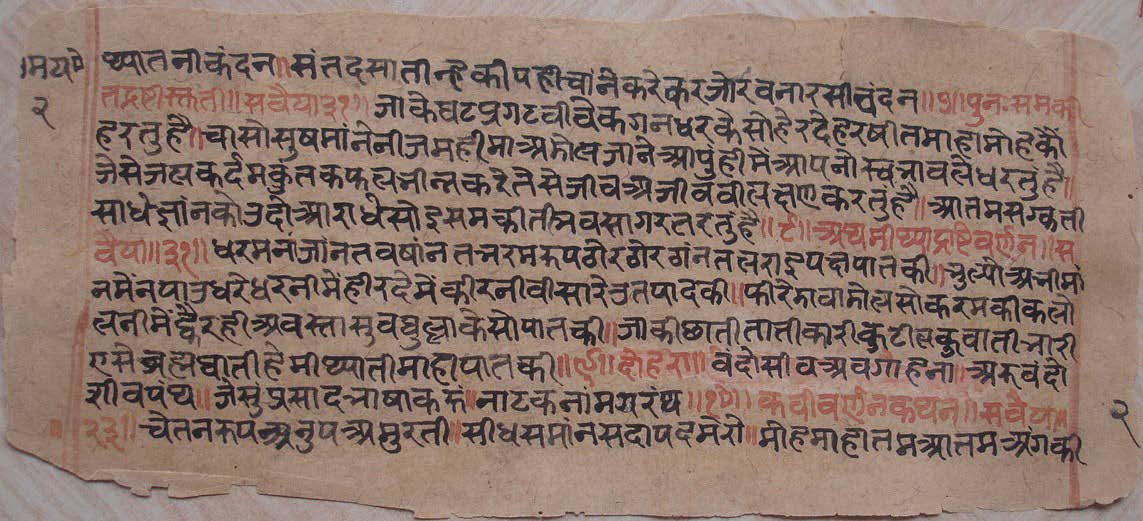 थ्यातनीकंदन॥संतदसातीन्हैकीपहीचांनैकरेकरजोरवनारसीवंदन॥७॥पुनःसमकी
तद्रष्टीस्तुती॥सवैया३१॥जाकेघटप्रगटवीवेकगनधरकेसोहैरदेहरषीतमाहामोहकौं
हरतुहै॥चासोसुषमांनेनीजमहीमाअमोलजानेआपुंहीमेंआपनौस्वनावलेधरतुंहै॥
जैसेजलकर्दमकुंतकफलभीन्नकरेतेसेजीवअजीववीलछणकरतुंहै॥आतमसगकती
साधेज्ञांनकोउदोआराधेसोइसमकीतीनवसागरतरतुंहै॥८॥अथमीथ्याद्रष्टिवर्णन॥स
वैया॥३१॥धरमनजांनतवषांनतनरमरुपठौरठोरठांनतलराइपछीपातकी॥नुल्यौअनीमां
नमेंनपाउधरेधरनीमेंहीरदेमेंकीरनीवीसारेउतपादकी॥फीरेमावामोलसोकरमकीकलो
लनीमेंव्हैरहीअवस्तासुवघुलाकेसोपातकी॥जाकीछातीतातीकारीकुटीलकुवातीनारी
एसेब्रह्मघातीहेमीथ्यातीमाहापातकी॥९॥दोहरा॥वंदोसीवअवगाहना॥अरुवंदो
शीवपंथ॥जैसुंप्रसादनाषाकरुं॥नाटकनामगरंथ॥१०॥कवीवर्णनकथन॥सवैया॥
२३॥चेतनरुपअनुपअमुरती॥सीधसमांनसदापदमेरौ॥मोहमाहातमआतमअंगकी
२
२